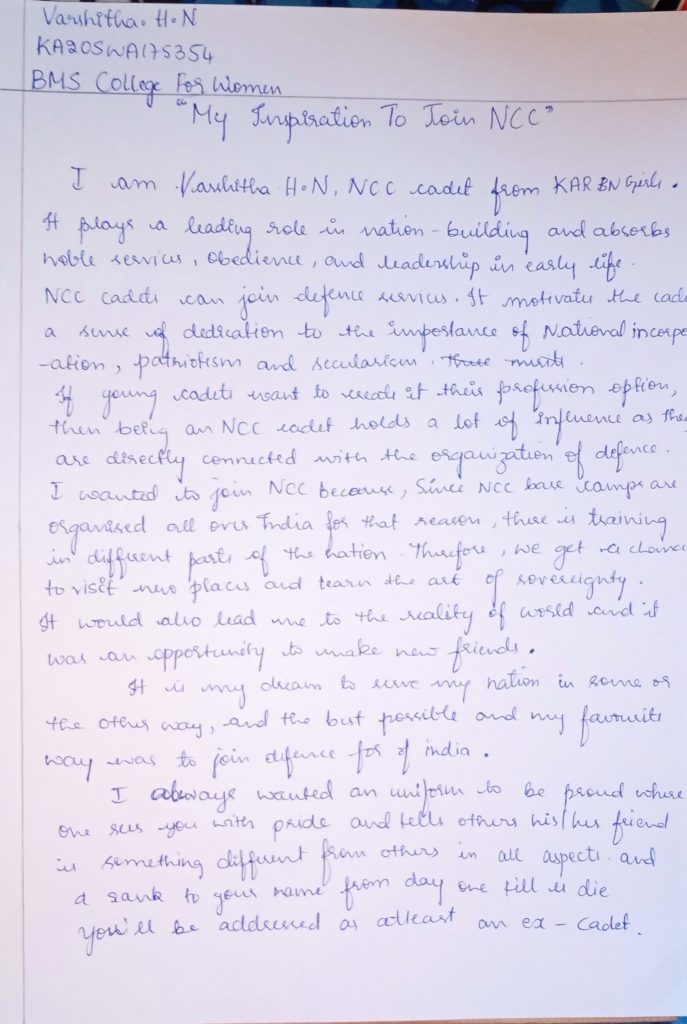 Varshitha. H.N
KA20SWA175354
BMS College For Women
"My Inspiration To Join NCC"
I am Varshitha H.N, NCC cadet from KAR BN Girls.
It plays a leading role in nation-building and absorbs
noble services, obedience, and leadership in early life.
NCC cadets can join defence services. It motivates the cade
a sense of dedication to the importance of National incorpo
-ation, patriotism and secularism. These merits.
If young cadets want to it their profession option,
then being an NCC cadet holds a lot of influence as they
are directly connected with the organization of defence.
I wanted to join NCC because, Since NCC base camps are
organised all over India for that reason, there is training
in different parts of the nation. Therefore, we get a chance
to visit new places and learn the art of sovereignty.
It would also lead me to the reality of world and it
was an opportunity to make new friends.
It is my dream to serve my nation in some or
the other way, and the best possible and my favourite
way was to join defence for of india.
I always wanted an uniform to be proud where
one sees you with pride and tells others his/her friend
is something different from others in all aspects and
a rank to your name from day one till u die
you'll be addressed as atleast an ex-cadet.